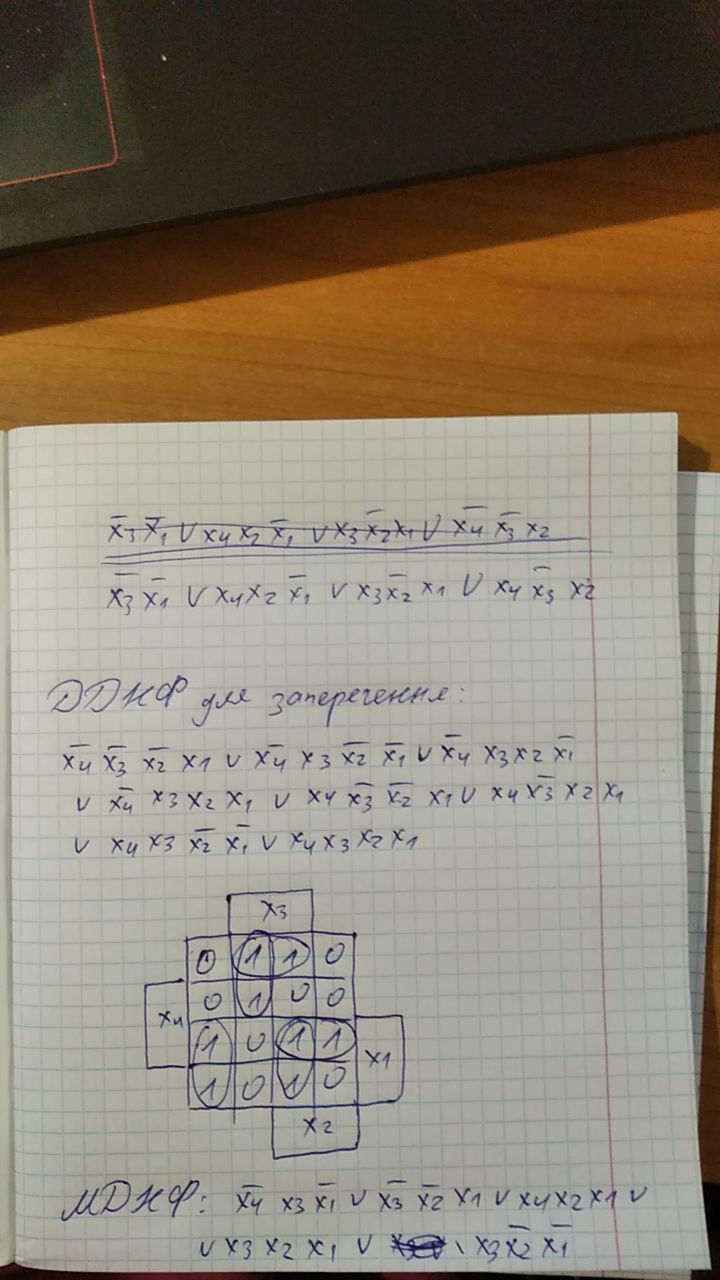 x̄3 x̄1 ∨ x4 x2 x̄1 ∨ x3 x̄2 x1 ∨ x̄4 x̄3 x2
x̄3 x̄1 ∨ x4 x2 x̄1 ∨ x3 x̄2 x1 ∨ x4 x̄3 x2
ДДНФ для заперечення:
x̄4 x̄3 x̄2 x1 ∨ x̄4 x3 x̄2 x̄1 ∨ x̄4 x3 x2 x̄1
∨ x̄4 x3 x2 x1 ∨ x4 x̄3 x̄2 x1 ∨ x4 x̄3 x2 x1
∨ x4 x3 x̄2 x̄1 ∨ x4 x3 x2 x1
x3
0 1 1 0
0 1 0 0
x4
1 0 1 1
x1
1 0 1 0
x2
МДНФ: x̄4 x3 x̄1 ∨ x̄3 x̄2 x1 ∨ x4 x2 x1 ∨
∨ x3 x2 x1 ∨ x3 x̄2 x̄1